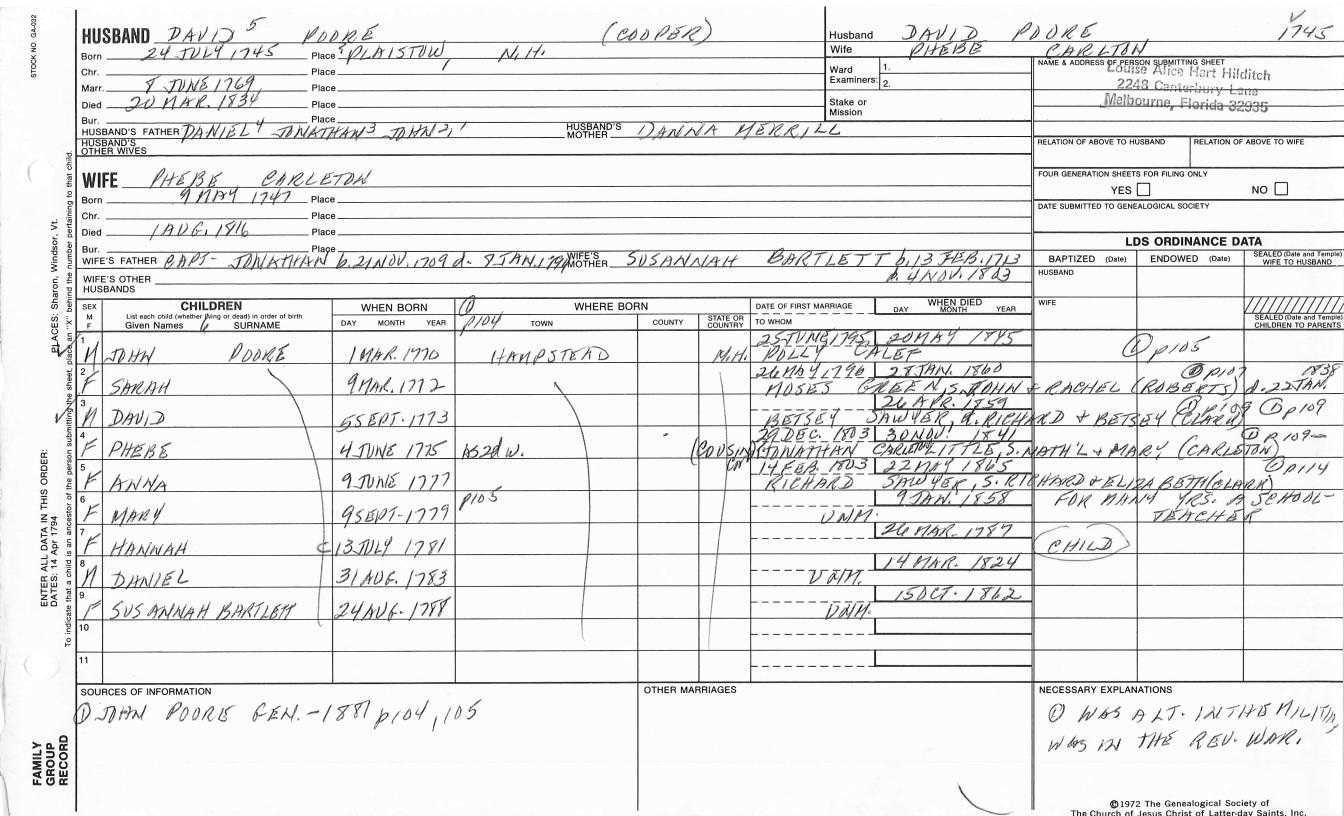 STOCK NO. GA-032
HUSBAND DAVID 5 POORE (COOPER)
Born 24 JULY 1745 Place ? PLAISTOW, N.H.
Chr. Place
Marr. 8 JUNE 1769 Place
Died 20 MAR. 1834 Place
Bur. Place
HUSBAND'S FATHER DANIEL 4 JONATHAN 3 JOHN 2,1 HUSBAND'S MOTHER DANNA MERRILL
HUSBAND'S OTHER WIVES
Husband DAVID POORE 1745
Wife PHEBE CARLTON
Ward Examiners: 1.
2.
Stake or Mission
NAME & ADDRESS OF PERSON SUBMITTING SHEET
Louise Alice Hart Hilditch
2248 Canterbury Lane
Melbourne, Florida 32935
RELATION OF ABOVE TO HUSBAND RELATION OF ABOVE TO WIFE
FOUR GENERATION SHEETS FOR FILING ONLY
YES NO
DATE SUBMITTED TO GENEALOGICAL SOCIETY
WIFE PHEBE CARLETON
Born 9 MAY 1747 Place
Chr. Place
Died 1 AUG. 1816 Place
Bur. Place
WIFE'S FATHER CAPT- JONATHAN b. 21 NOV. 1709 d. 8 JAN. WIFE'S MOTHER SUSANNAH BARTLETT b. 13 FEB. 1713
d. 4 NOV. 1803
WIFE'S OTHER HUSBANDS
LDS ORDINANCE DATA
BAPTIZED (Date) ENDOWED (Date) SEALED (Date and Temple) WIFE TO HUSBAND
HUSBAND
WIFE
SEALED (Date and Temple) CHILDREN TO PARENTS
SEX M F CHILDREN List each child (whether living or dead) in order of birth Given Names 6 SURNAME WHEN BORN DAY MONTH YEAR ① p104 WHERE BORN TOWN COUNTY STATE OR COUNTRY DATE OF FIRST MARRIAGE TO WHOM WHEN DIED DAY MONTH YEAR
1 M JOHN POORE 1 MAR. 1770 HAMPSTEAD N.H. 25 JUNE 1795 20 MAY 1845 POLLY CALEF ① p105
2 F SARAH 9 MAR. 1772 26 MAY 1796 28 JAN. 1860 MOSES GREEN, S. JOHN & RACHEL (ROBERTS) d. 22 JAN. 1838 ① p107
3 M DAVID 5 SEPT. 1773 26 APR. 1859 BETSEY SAWYER, d. RICHARD & BETSEY (CLARK) ① p109 ① p109
4 F PHEBE 4 JUNE 1775 AS 2d W. (COUSIN) 29 DEC. 1803 30 NOV. 1841 JONATHAN CARLETON LITTLE, S. NATH'L & MARY (CARLETON) ① p109
5 F ANNA 9 JUNE 1777 14 FEB. 1803 22 MAY 1865 RICHARD SAWYER, S. RICHARD & ELIZABETH (CLARK) ① p114
6 F MARY 9 SEPT. 1779 p105 UNM. 9 JAN. 1858 FOR MANY YRS. A SCHOOL-
TEACHER
7 F HANNAH 13 JULY 1781 26 MAR. 1787 CHILD
8 M DANIEL 31 AUG. 1783 UNM. 14 MAR. 1824
9 F SUSANNAH BARTLETT 24 AUG. 1788 UNM. 15 OCT. 1862
10
11
SOURCES OF INFORMATION
① JOHN POORE GEN. - 1881 p104, 105
OTHER MARRIAGES
NECESSARY EXPLANATIONS
① WAS A LT. IN THE MILITIA,
WAS IN THE REV. WAR.
©1972 The Genealogical Society of
The Church of Jesus Christ of Latter-day Saints, Inc.
FAMILY GROUP RECORD
ENTER ALL DATA IN THIS ORDER:
DATES: 14 Apr 1794 PLACES: Sharon, Windsor, Vt.
To indicate that a child is an ancestor of the person submitting the sheet, place an "X" behind the number pertaining to that child.